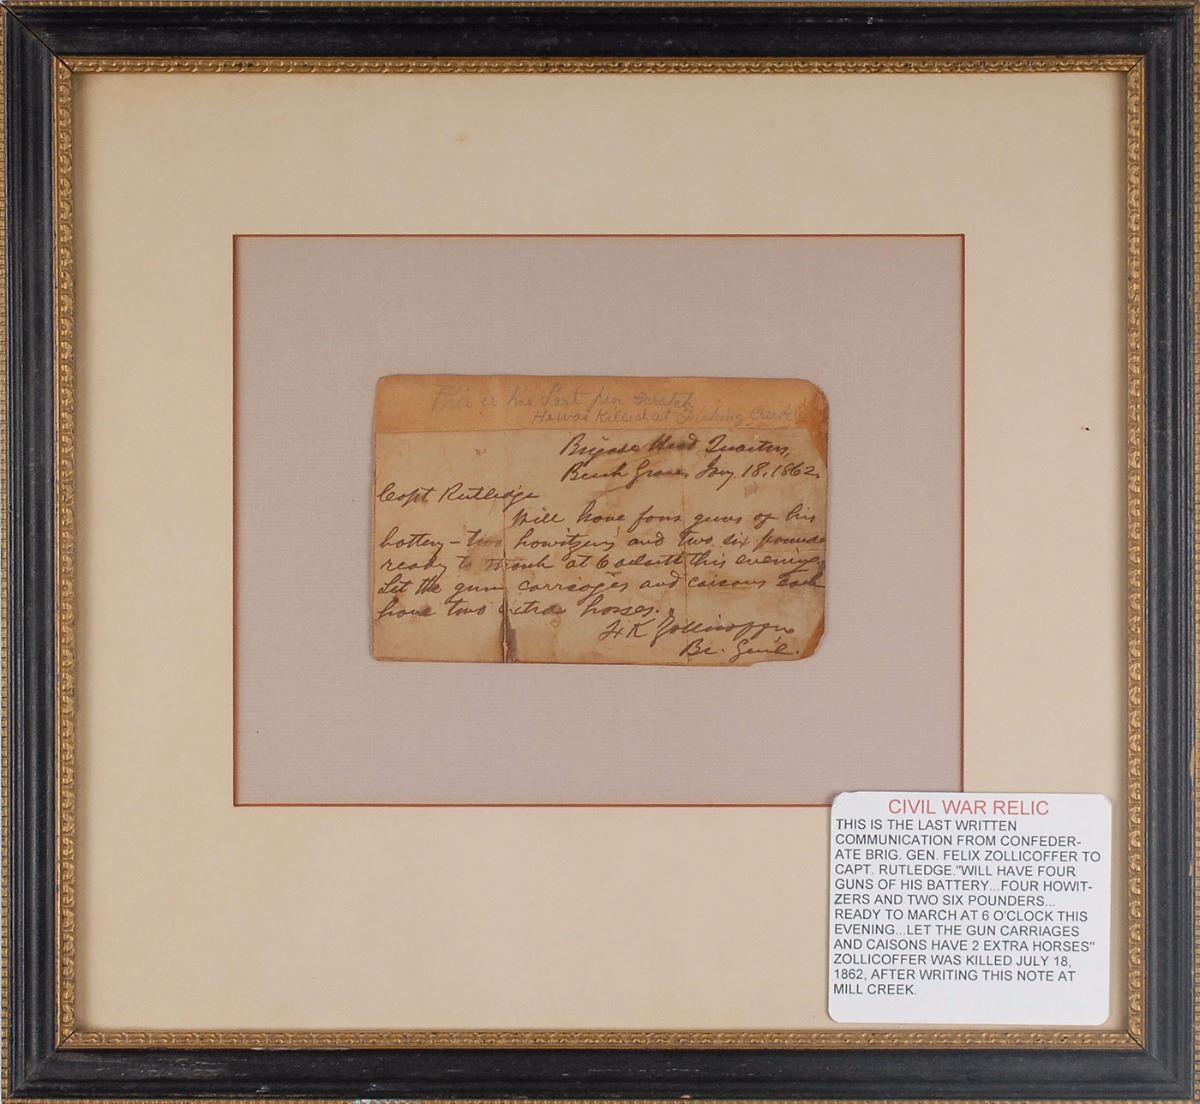 This is his Last pen Scratch
He was Killed at Fishing Creek
Brigade Head Quarters,
Beech Grove, Jany. 18, 1862.
Capt Rutledge
Will have four guns of his
battery - two howitzers and two six pounders
ready to march at 6 oclock this evening.
Let the gun carriages and caisons each
have two extra horses.
F K Zollicoffer
Br. Genl.
CIVIL WAR RELIC
THIS IS THE LAST WRITTEN
COMMUNICATION FROM CONFEDER-
ATE BRIG. GEN. FELIX ZOLLICOFFER TO
CAPT. RUTLEDGE."WILL HAVE FOUR
GUNS OF HIS BATTERY...FOUR HOWIT-
ZERS AND TWO SIX POUNDERS...
READY TO MARCH AT 6 O'CLOCK THIS
EVENING...LET THE GUN CARRIAGES
AND CAISONS HAVE 2 EXTRA HORSES"
ZOLLICOFFER WAS KILLED JULY 18,
1862, AFTER WRITING THIS NOTE AT
MILL CREEK.